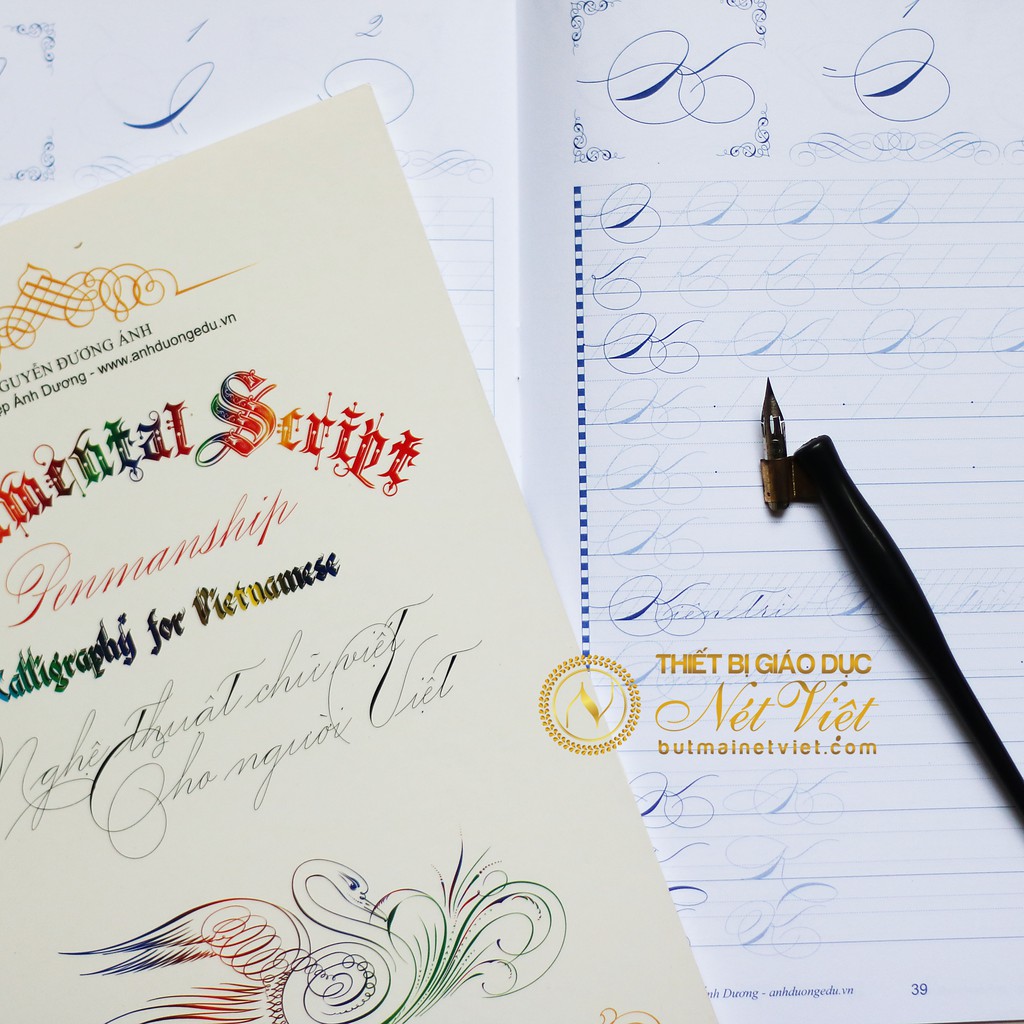 1
2
K
1
NGUYỄN DƯƠNG ÁNH
Ánh Dương - www.anhduongedu.vn
Script
Penmanship
Calligraphy for Vietnamese
Nghệ thuật chữ viết
Cho người Việt
K
Kiên Trì
THIẾT BỊ GIÁO DỤC
Nét Việt
butmainetviet.com
Dương - anhduongedu.vn
39